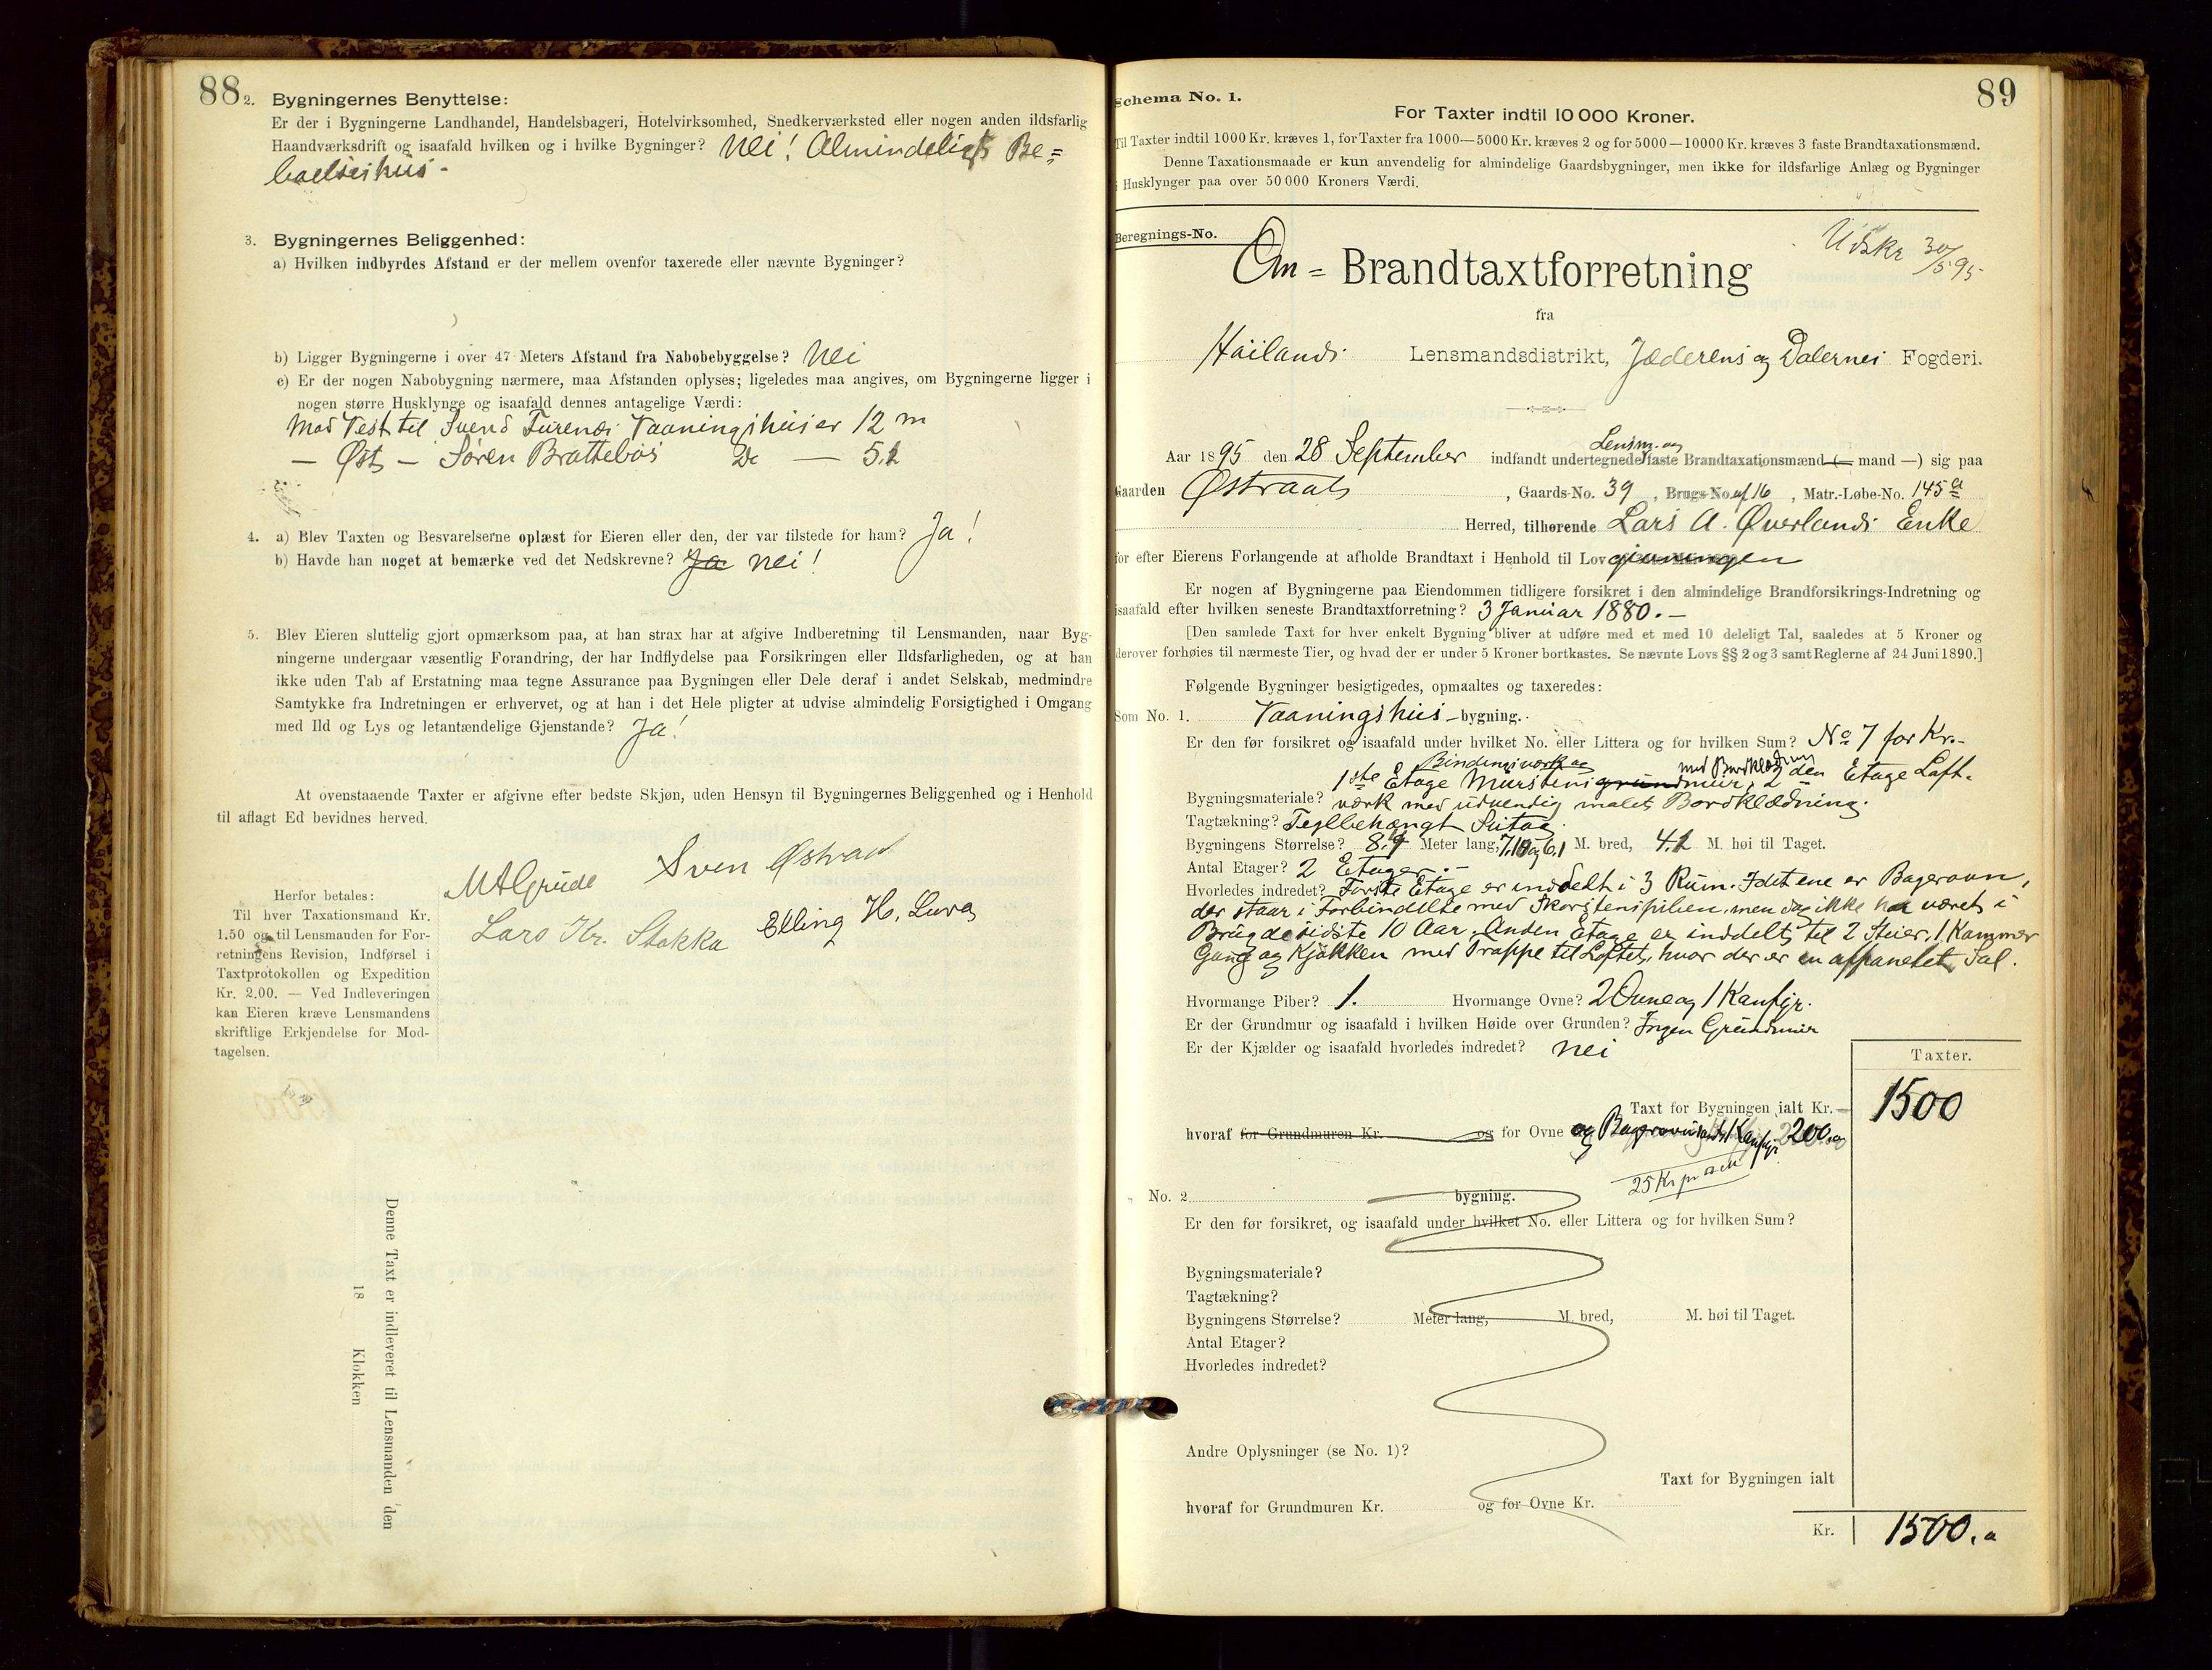 88
2. Bygningernes Benyttelse:
Er der i Bygningerne Landhandel, Handelsbageri, Hotelvirksomhed, Snedkerværksted eller nogen anden ildsfarlig
Haandværksdrift og isaafald hvilken og i hvilke Bygninger? Nei! Almindeligt Be=
boelseshus.
3. Bygningernes Beliggenhed:
a) Hvilken indbyrdes Afstand er der mellem ovenfor taxerede eller nævnte Bygninger?
b) Ligger Bygningerne i over 47 Meters Afstand fra Nabobebyggelse? Nei
c) Er der nogen Nabobygning nærmere, maa Afstanden oplyses; ligeledes maa angives, om Bygningerne ligger i
nogen større Husklynge og isaafald dennes antagelige Værdi:
Mod Vest til Svend Furenæs Vaaningshus er 12 m
— Øst — Søren Brattebøs Do — 5.2
4. a) Blev Taxten og Besvarelserne oplæst for Eieren eller den, der var tilstede for ham? Ja!
b) Havde han noget at bemærke ved det Nedskrevne? Ja nei!
5. Blev Eieren sluttelig gjort opmærksom paa, at han strax har at afgive Indberetning til Lensmanden, naar Byg-
ningerne undergaar væsentlig Forandring, der har Indflydelse paa Forsikringen eller Ildsfarligheden, og at han
ikke uden Tab af Erstatning maa tegne Assurance paa Bygningen eller Dele deraf i andet Selskab, medmindre
Samtykke fra Indretningen er erhvervet, og at han i det Hele pligter at udvise almindelig Forsigtighed i Omgang
med Ild og Lys og letantændelige Gjenstande? Ja!
At ovenstaaende Taxter er afgivne efter bedste Skjøn, uden Hensyn til Bygningernes Beliggenhed og i Henhold
til aflagt Ed bevidnes herved.
MAGrude Sven Østraat
Lars Kr. Stokka Elling H. Lura
Herfor betales:
Til hver Taxationsmand Kr.
1.50 og til Lensmanden for For-
retningens Revision, Indførsel i
Taxtprotokollen og Expedition
Kr. 2.00. — Ved Indleveringen
kan Eieren kræve Lensmandens
skriftlige Erkjendelse for Mod-
tagelsen.
Denne Taxt er indleveret til Lensmanden den
18 Klokken
89
Schema No. 1.
For Taxter indtil 10 000 Kroner.
Til Taxter indtil 1000 Kr. kræves 1, for Taxter fra 1000—5000 Kr. kræves 2 og for 5000—10000 Kr. kræves 3 faste Brandtaxationsmænd.
Denne Taxationsmaade er kun anvendelig for almindelige Gaardsbygninger, men ikke for ildsfarlige Anlæg og Bygninger
i Husklynger paa over 50 000 Kroners Værdi.
Beregnings-No.
Udskr 30/5 95
Om= Brandtaxtforretning
fra
Høilands Lensmandsdistrikt, Jæderens og Dalernes Fogderi.
Lensm. og
Aar 1895 den 28 September indfandt undertegnede faste Brandtaxationsmænd (— mand —) sig paa
Gaarden Østraat, Gaards-No. 39, Brugs-No. af 16, Matr.-Løbe-No. 145a
Herred, tilhørende Lars A. Øverlands Enke
for efter Eierens Forlangende at afholde Brandtaxt i Henhold til Lovgivningen
Er nogen af Bygningerne paa Eiendommen tidligere forsikret i den almindelige Brandforsikrings-Indretning og
isaafald efter hvilken seneste Brandtaxtforretning? 3 Januar 1880.—
[Den samlede Taxt for hver enkelt Bygning bliver at udføre med et med 10 deleligt Tal, saaledes at 5 Kroner og
derover forhøies til nærmeste Tier, og hvad der er under 5 Kroner bortkastes. Se nævnte Lovs §§ 2 og 3 samt Reglerne af 24 Juni 1890.]
Følgende Bygninger besigtigedes, opmaaltes og taxeredes:
Som No. 1. Vaaningshus-bygning.
Er den før forsikret og isaafald under hvilket No. eller Littera og for hvilken Sum? No 7 for Kr.-
Bindingsværk og med Bordklædning
1ste Etage Murstensgrundmur, 2den Etage Loft-
Bygningsmateriale? værk med udvendig malet Bordklædning.
Tagtækning? Teglbehængt Sutag
Bygningens Størrelse? 8.9 Meter lang, 7.10 og 6.1 M. bred, 4.2 M. høi til Taget.
Antal Etager? 2 Etager.-
Hvorledes indredet? Første Etage er inddelt i 3 Rum. I det ene er Bagerovn,
der staar i Forbindelse med Skorstenspiben, men dog ikke har været i
Brug de sidste 10 Aar. Anden Etage er inddelt til 2 Stuer, 1 Kammer
Gang og Kjøkken med Trappe til Loftet, hvor der er en afpanelet Sal.
Hvormange Piber? 1. Hvormange Ovne? 2 Ovne og 1 Komfyr.
Er der Grundmur og isaafald i hvilken Høide over Grunden? Ingen Grundmur
Er der Kjælder og isaafald hvorledes indredet? Nei
Taxter.
Taxt for Bygningen ialt Kr. 1500
hvoraf for Grundmuren Kr. og for Ovne og Bagerovn samt Komfyr 200
No. 2 bygning.
Er den før forsikret, og isaafald under hvilket No. eller Littera og for hvilken Sum?
Bygningsmateriale?
Tagtækning?
Bygningens Størrelse? Meter lang, M. bred, M. høi til Taget.
Antal Etager?
Hvorledes indredet?
Andre Oplysninger (se No. 1)?
Taxt for Bygningen ialt
hvoraf for Grundmuren Kr. og for Ovne Kr.
Kr. 1500.